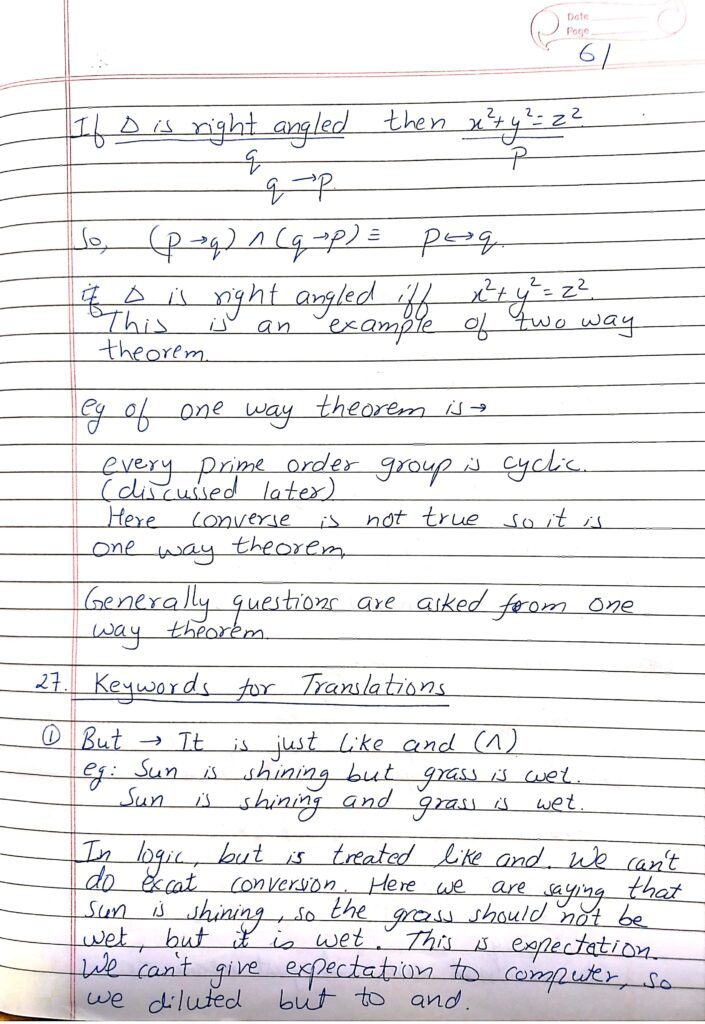 Date
Page
61
If Δ is right angled then x²+y²=z²
q p
q→p
So, (p→q) ∧ (q→p) ≡ p↔q
Δ is right angled iff x²+y²=z²
This is an example of two way
theorem.
eg of one way theorem is →
every prime order group is cyclic.
(discussed later)
Here converse is not true so it is
one way theorem,
Generally questions are asked from one
way theorem.
27. Keywords for Translations
① But → It is just like and (∧)
eg: Sun is shining but grass is wet.
Sun is shining and grass is wet.
In logic, but is treated like and. We can't
do excat conversion. Here we are saying that
sun is shining, so the grass should not be
wet, but it is wet. This is expectation.
We can't give expectation to computer, so
we diluted but to and.